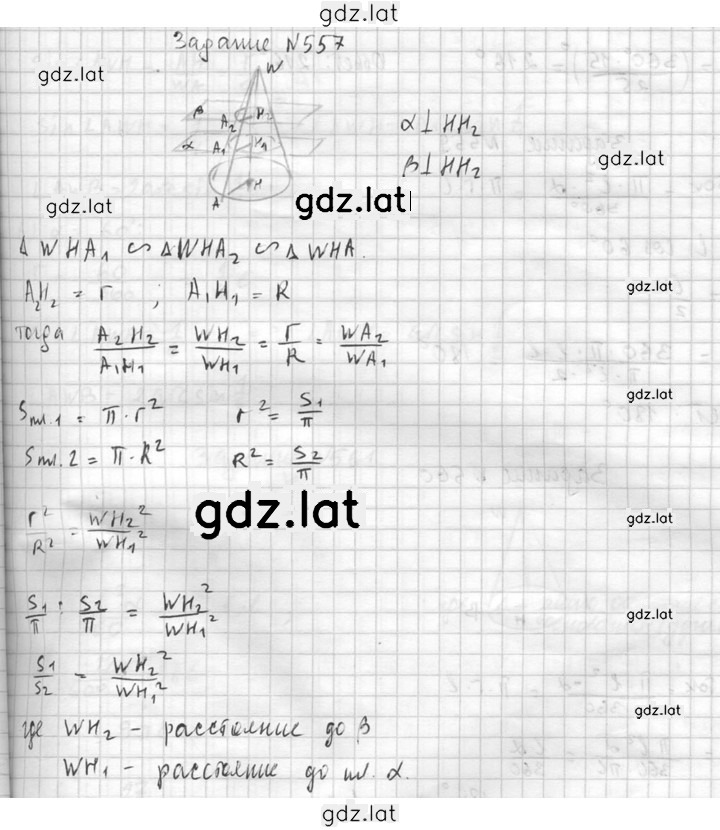 gdz.lat
Задание №557
gdz.lat
W
β A₂ H₂
α A₁ H₁
A H
α⊥HH₂
β⊥HH₂
gdz.lat
gdz.lat
gdz.lat
Δ WHA₁ ∽ ΔWHA₂ ∽ Δ WHA.
A₂H₂ = r ; A₁H₁ = R
gdz.lat
тогда A₂H₂/A₁H₁ = WH₂/WH₁ = r/R = WA₂/WA₁
gdz.lat
Sпл.1 = π·r² r² = S₁/π
Sпл.2 = π·R² R² = S₂/π
gdz.lat
r²/R² = WH₂²/WH₁²
gdz.lat
gdz.lat
S₁/π : S₂/π = WH₂²/WH₁²
gdz.lat
S₁/S₂ = WH₂²/WH₁²
gdz.lat
где WH₂ – расстояние до β
WH₁ – расстояние до пл. α.
gdz.lat